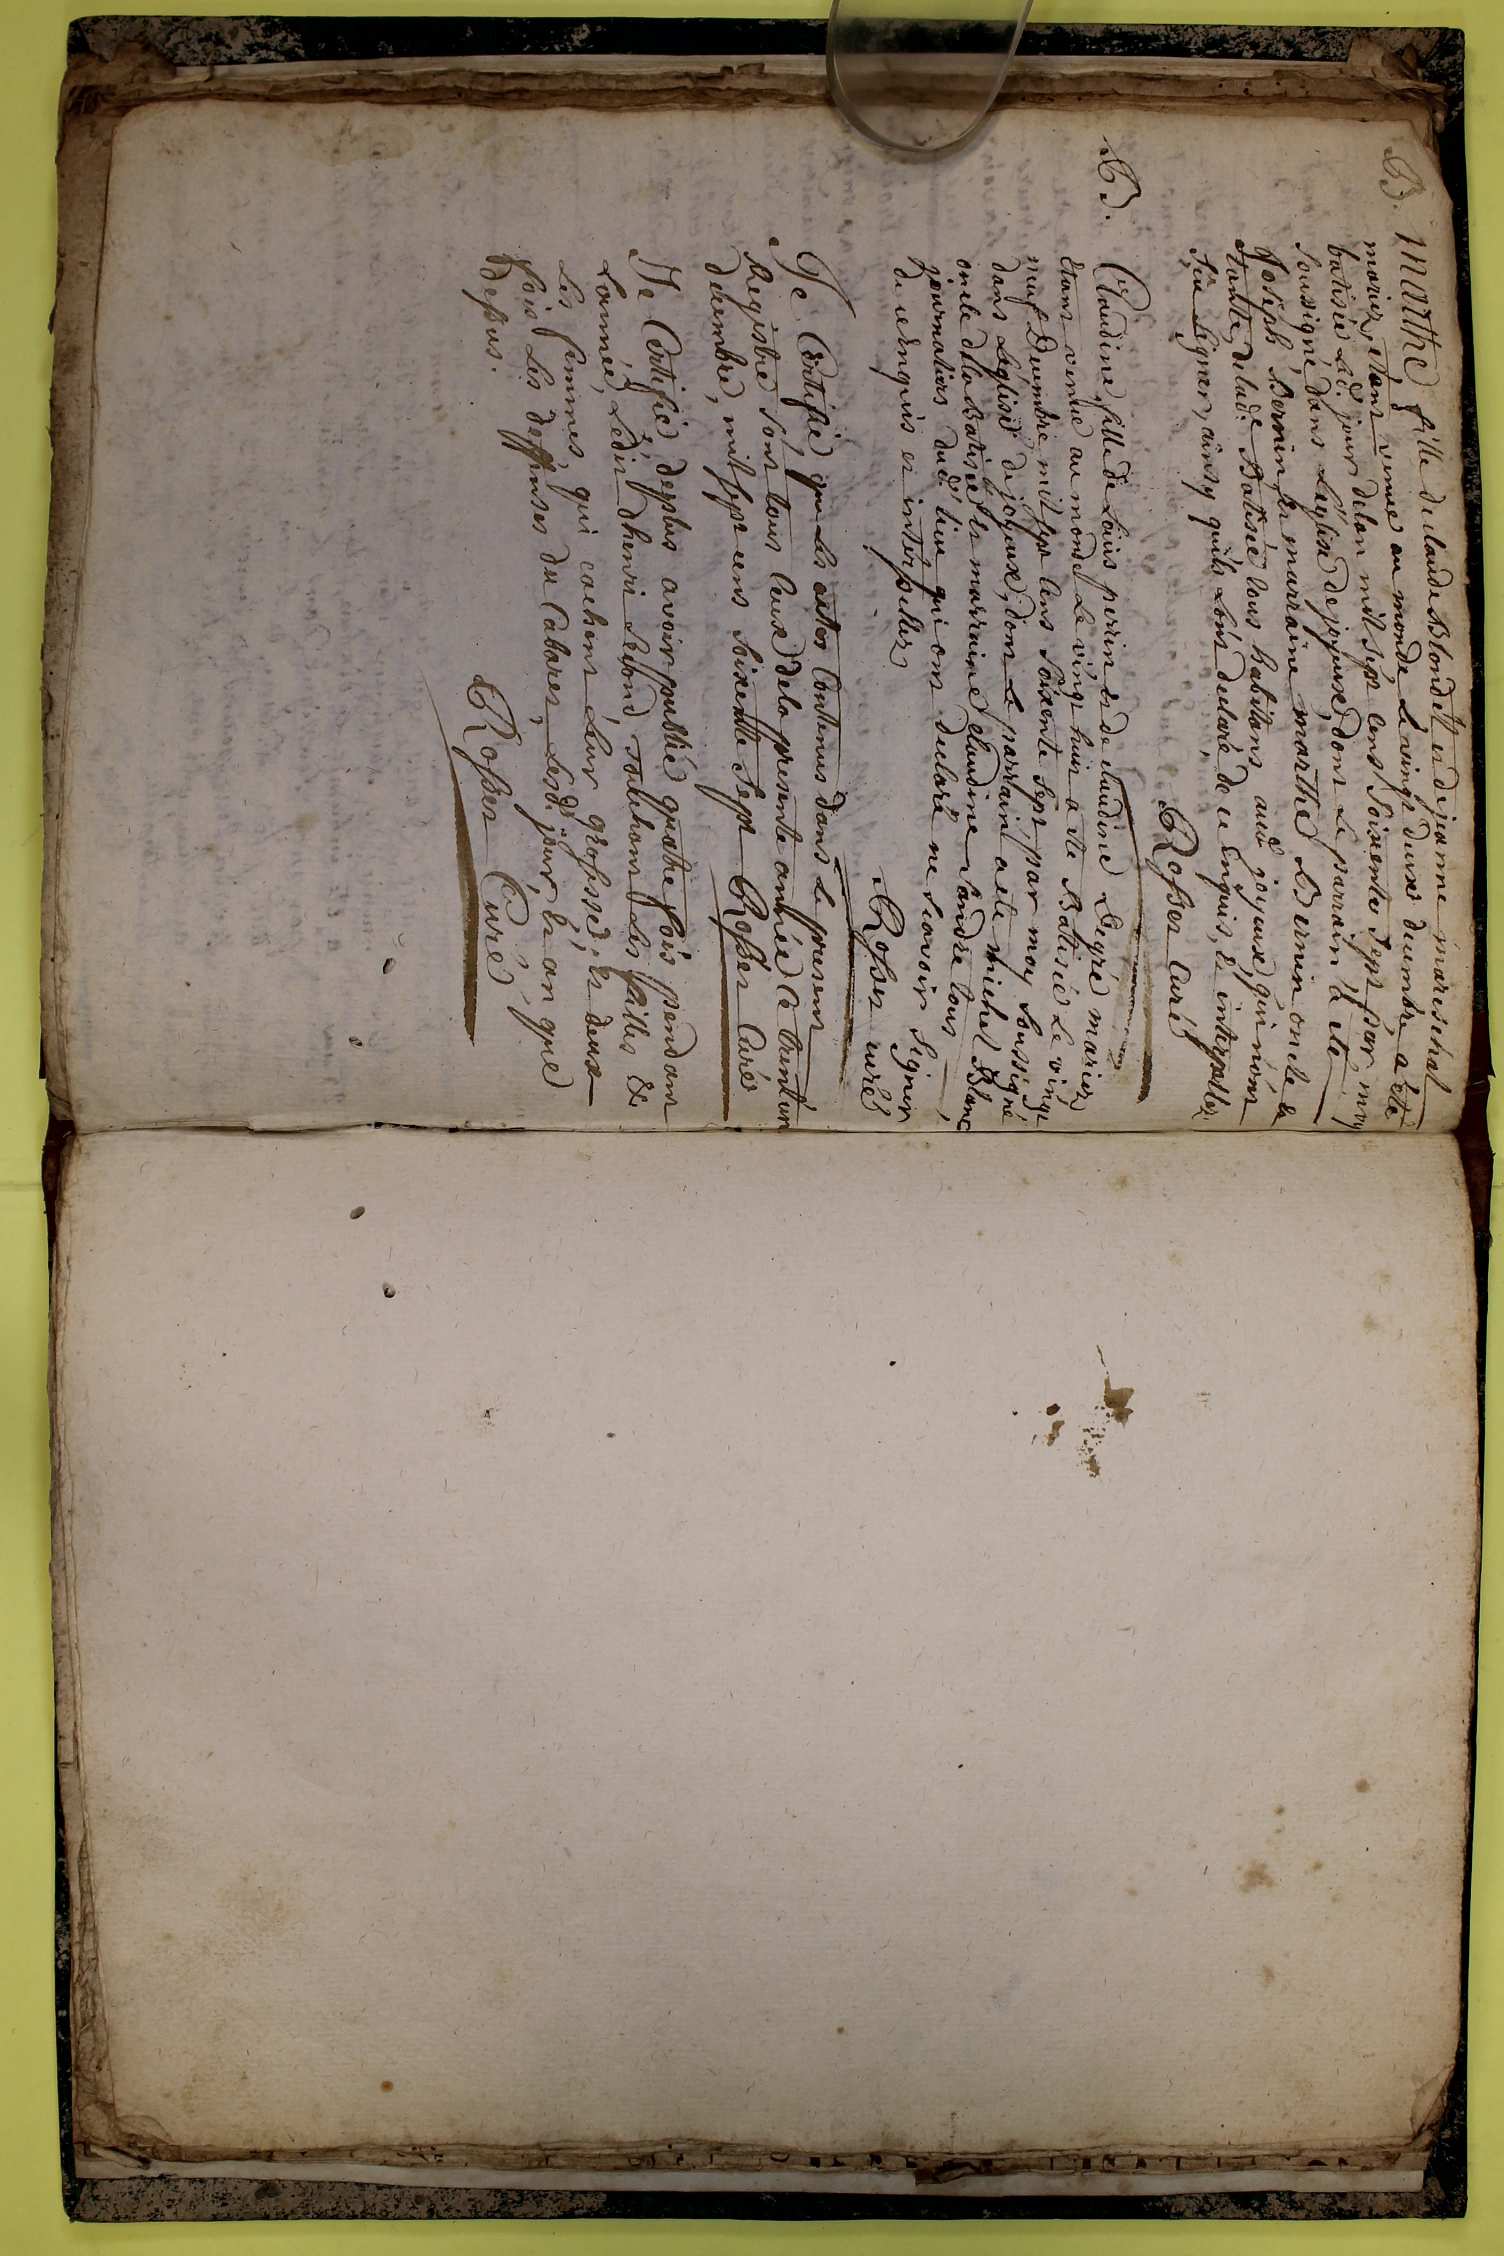 B. Marthe fille de claude Blondet et de jeanne mareschal
mariez, etant venue au monde Le vingt deux decembre a été
batisée led. jour de lan mil sept cens soixente sept par moy
soussigné dans L'eglise de joyeux, dont Le parrain à eté
Joseph Bernin et marraine marthe Bernin oncle et
tante de lad.e Batisée tous habitans aud. joyeux, qui n'ont
sçu signer, ainsy qu'ils L'ont declaré de ce enquis, et interpellez
Rosser Curé
B. Claudine, fille de Loüis perrin et de claudine Degré mariez
etant venue au monde Le vingt huit a ete Batisée Le vingt
neuf Decembre mil sept cens soixente sept par moy soussigné
dans L'eglise de joyeux, dont Le parrain a eté michel Blanc
oncle de la Batisée et marraine claudine tous
journaliers dud. lieu qui ont declaré ne scavoir signer
de ce enquis et interpellez
Rosser curé
Je Certifie que Les actes Contenus dans Le present
Registre sont tous Ceux de la presente année Ce trent'un
decembre, mil sept cens soixente sept Rosser Curé
Je Certifie, de plus avoir publié quatre fois pendant
L'année, L'edit d'henri second, touchant Les filles &
Les femmes, qui cachent Leur grossesse, et deux
fois Les deffenses du Cabaret, Lesd. jour, et an que
Dessus.
Rosser Curé